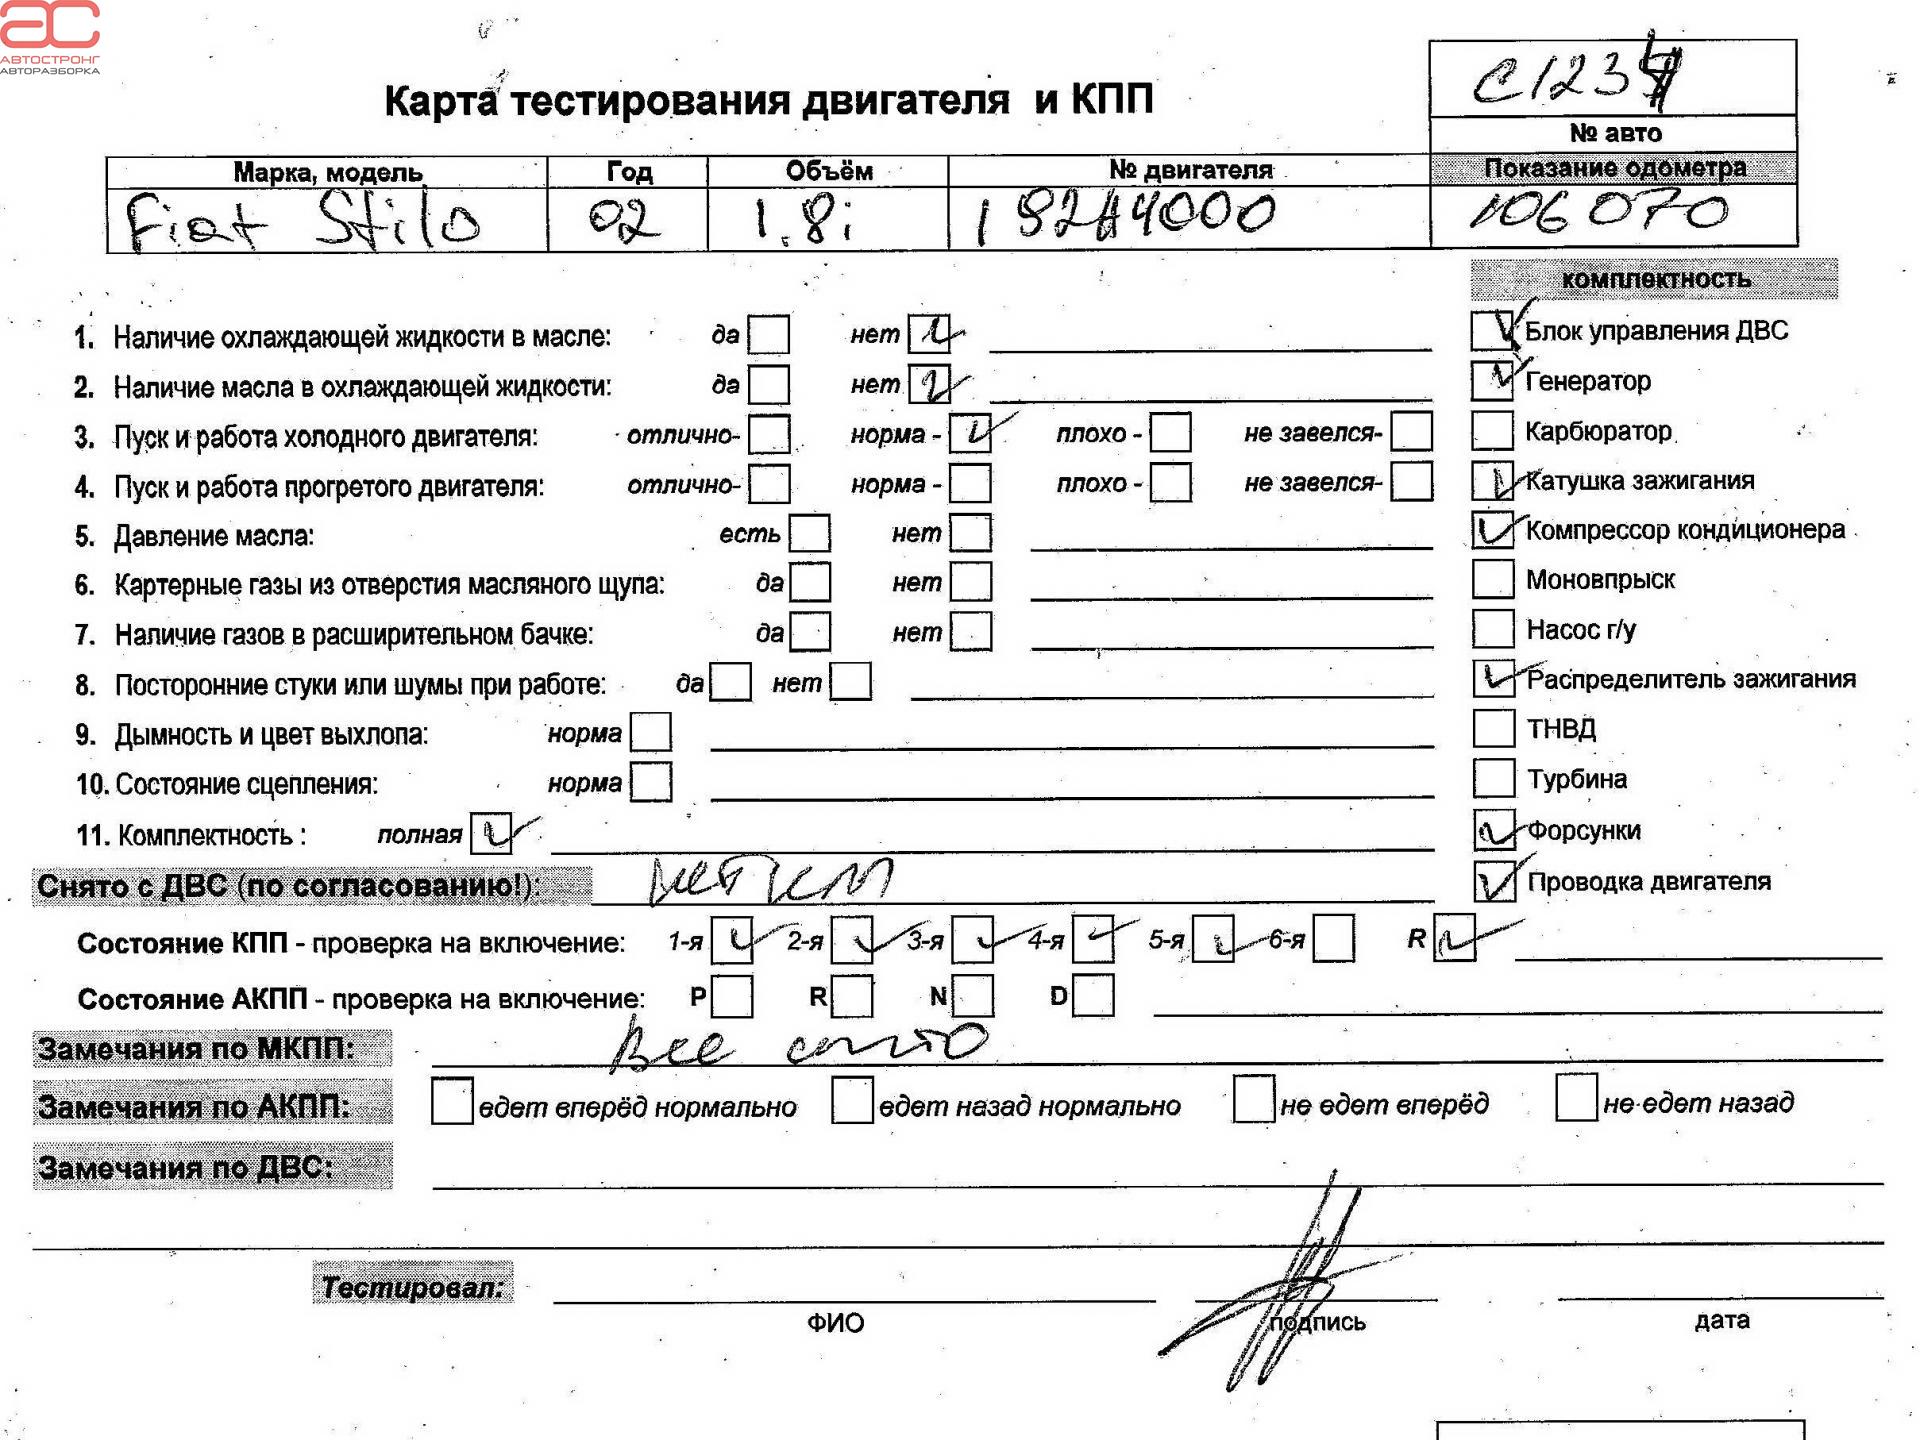 АС
АВТОСТРОНГ
АВТОРАЗБОРКА
Карта тестирования двигателя и КПП
С123
№ авто
Марка, модель Год Объём № двигателя Показание одометра
Fiat Stilo 02 1.8i 192A4000 106070
комплектность
1. Наличие охлаждающей жидкости в масле: да нет Блок управления ДВС
2. Наличие масла в охлаждающей жидкости: да нет Генератор
3. Пуск и работа холодного двигателя: отлично- норма - плохо - не завелся- Карбюратор
4. Пуск и работа прогретого двигателя: отлично- норма - плохо - не завелся- Катушка зажигания
5. Давление масла: есть нет Компрессор кондиционера
6. Картерные газы из отверстия масляного щупа: да нет Моновпрыск
7. Наличие газов в расширительном бачке: да нет Насос г/у
8. Посторонние стуки или шумы при работе: да нет Распределитель зажигания
9. Дымность и цвет выхлопа: норма ТНВД
10. Состояние сцепления: норма Турбина
11. Комплектность : полная Форсунки
Снято с ДВС (по согласованию!): Проводка двигателя
Состояние КПП - проверка на включение: 1-я 2-я 3-я 4-я 5-я 6-я R
Состояние АКПП - проверка на включение: P R N D
Замечания по МКПП: Все
Замечания по АКПП: едет вперёд нормально едет назад нормально не едет вперёд не едет назад
Замечания по ДВС:
Тестировал:
ФИО подпись дата